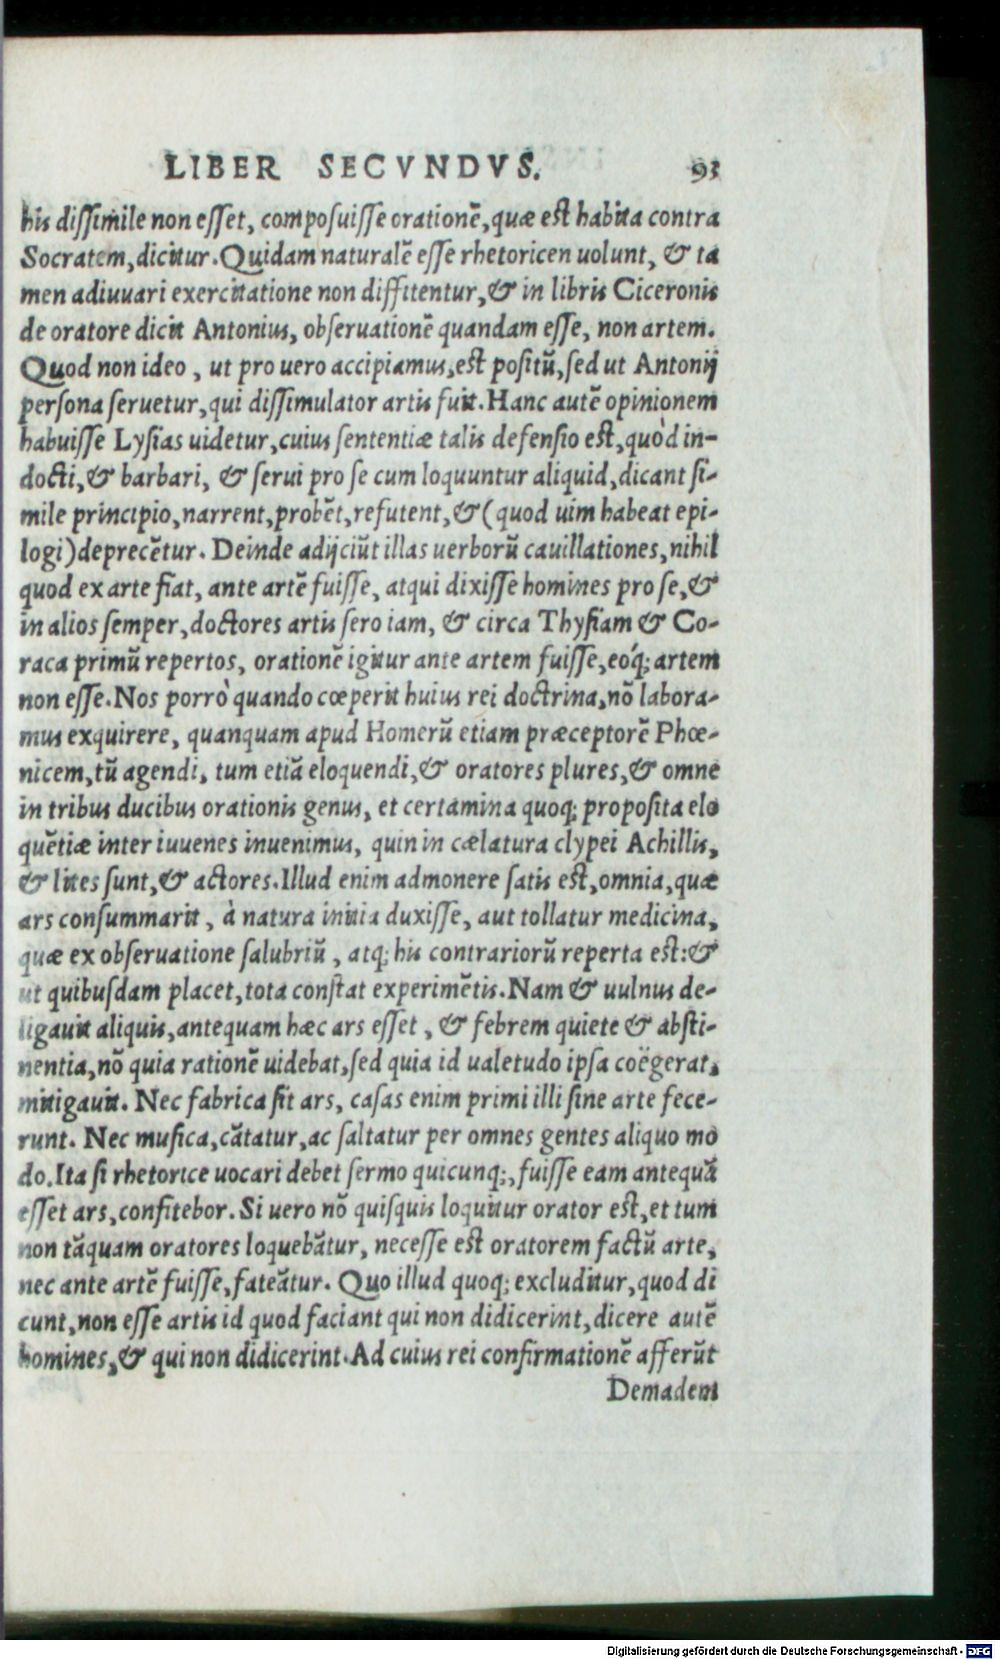 LIBER SECVNDVS. 93
his dissimile non esset, composuisse orationẽ, quæ est habita contra
Socratem, dicitur. Quidam naturalẽ esse rhetoricen uolunt, & ta
men adiuuari exercitatione non diffitentur, & in libris Ciceronis
de oratore dicit Antonius, obseruationẽ quandam esse, non artem.
Quod non ideo, ut pro uero accipiamus, est positũ, sed ut Antonij
persona seruetur, qui dissimulator artis fuit. Hanc autẽ opinionem
habuisse Lysias uidetur, cuius sententiæ talis defensio est, quòd in-
docti, & barbari, & serui pro se cum loquuntur aliquid, dicant si-
mile principio, narrent, probẽt, refutent, & (quod uim habeat epi-
logi) deprecẽtur. Deinde adijciũt illas uerborũ cauillationes, nihil
quod ex arte fiat, ante artẽ fuisse, atqui dixisse homines pro se, &
in alios semper, doctores artis sero iam, & circa Thysiam & Co-
raca primũ repertos, orationẽ igitur ante artem fuisse, eóq; artem
non esse. Nos porrò quando cœperit huius rei doctrina, nõ labora-
mus exquirere, quanquam apud Homerũ etiam præceptorẽ Phœ-
nicem, tũ agendi, tum etiã eloquendi, & oratores plures, & omne
in tribus ducibus orationis genus, et certamina quoq; proposita elo
quẽtiæ inter iuuenes inuenimus, quin in cælatura clypei Achillis,
& lites sunt, & actores. Illud enim admonere satis est, omnia, quæ
ars consummarit, à natura initia duxisse, aut tollatur medicina,
quæ ex obseruatione salubriũ, atq; his contrariorũ reperta est: &
ut quibusdam placet, tota constat experimẽtis. Nam & uulnus de-
ligauit aliquis, antequam hæc ars esset, & febrem quiete & absti-
nentia, nõ quia rationẽ uidebat, sed quia id ualetudo ipsa coëgerat,
mitigauit. Nec fabrica sit ars, casas enim primi illi sine arte fece-
runt. Nec musica, cãtatur, ac saltatur per omnes gentes aliquo mo
do. Ita si rhetorice uocari debet sermo quicunq;, fuisse eam antequã
esset ars, confitebor. Si uero nõ quisquis loquitur orator est, et tum
non tãquam oratores loquebãtur, necesse est oratorem factũ arte,
nec ante artẽ fuisse, fateãtur. Quo illud quoq; excluditur, quod di
cunt, non esse artis id quod faciant qui non didicerint, dicere autẽ
homines, & qui non didicerint. Ad cuius rei confirmationẽ afferũt
Demadem
Digitalisierung gefördert durch die Deutsche Forschungsgemeinschaft - DFG